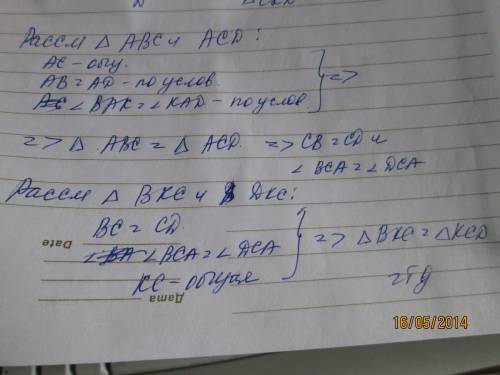 Рассм △ ABC и ACD:
AC - общ.
AB = AD - по услов.
∠ BAK = ∠ KAD - по услов.
=>
=> △ ABC = △ ACD. => CB = CD и
∠ BCA = ∠ DCA
Рассм △ BKC и ДКС:
BC = CD.
∠ BCA = ∠ DCA
KC - общая
=> △ BKC = △ KCD
чтд
Date
Дата
16/05/2014